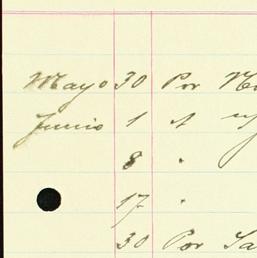 Mayo 30 Por
Junio 1 "
8 "
17 "
30 Por